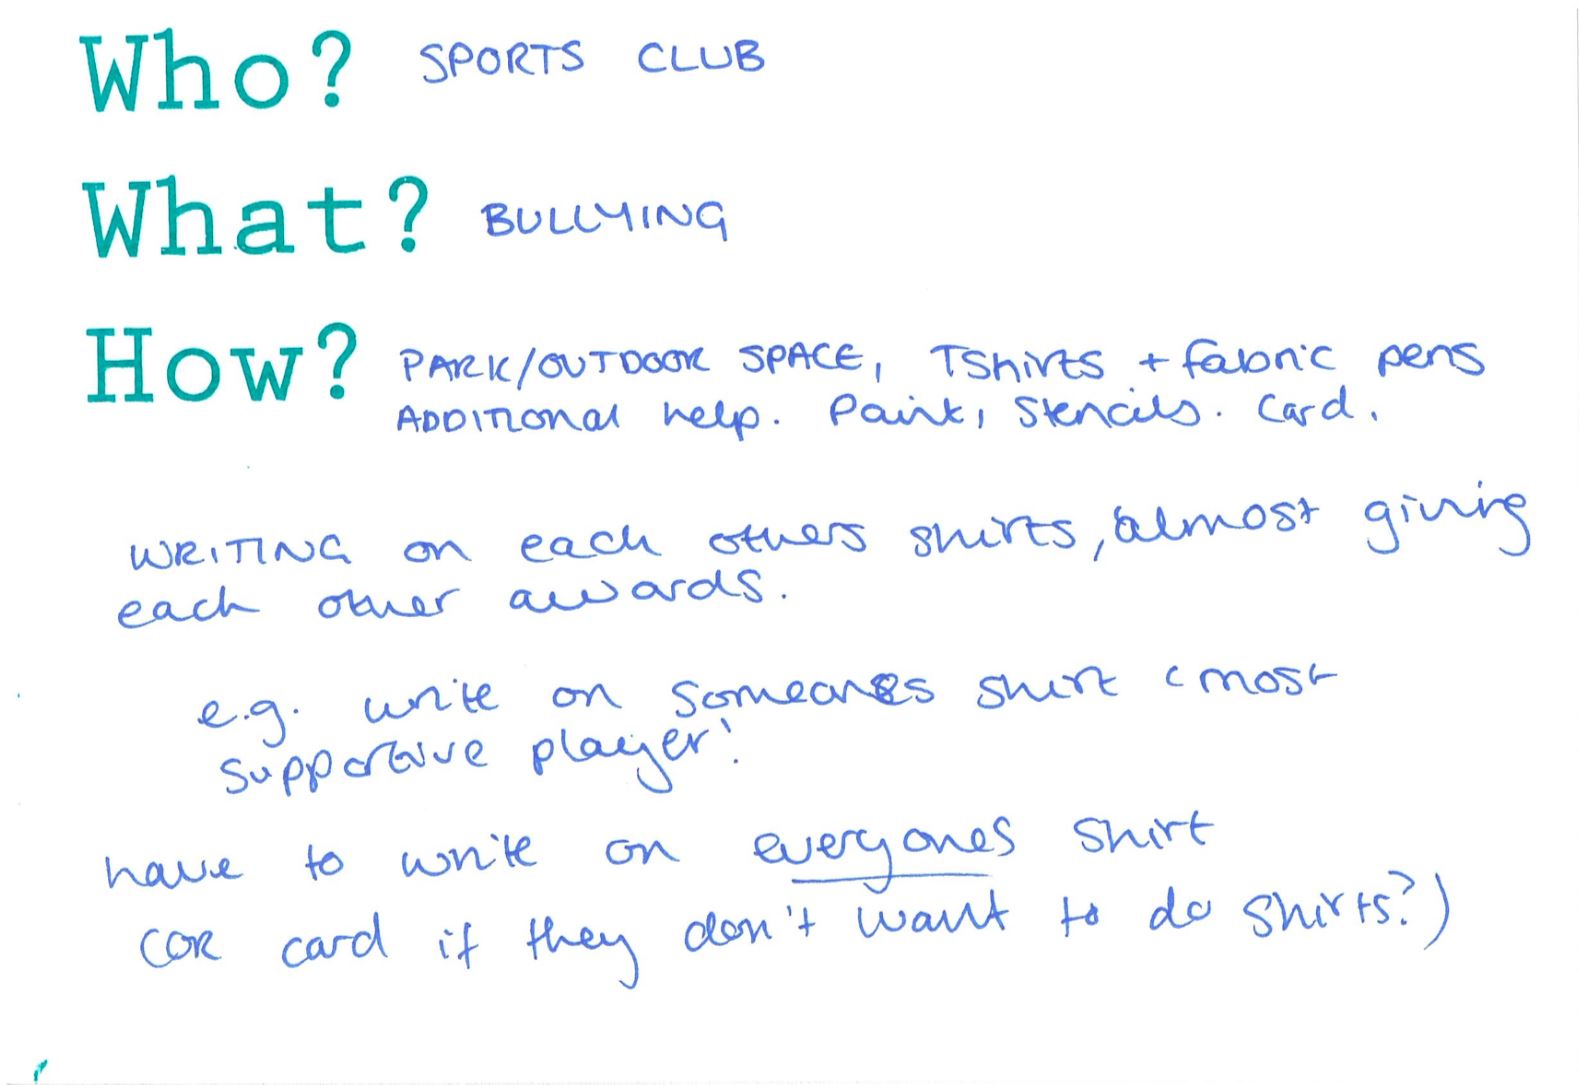 Who? SPORTS CLUB
What? BULLYING
How? PARK/OUTDOOR SPACE, TShirts + fabric pens
ADDITIONal help. Paint, Stencils. Card.
WRITING on each others shirts, almost giving
each other awards.
e.g. write on someones shirt 'most
supportive player'.
have to write on everyones shirt
(OR card if they don't want to do shirts?)